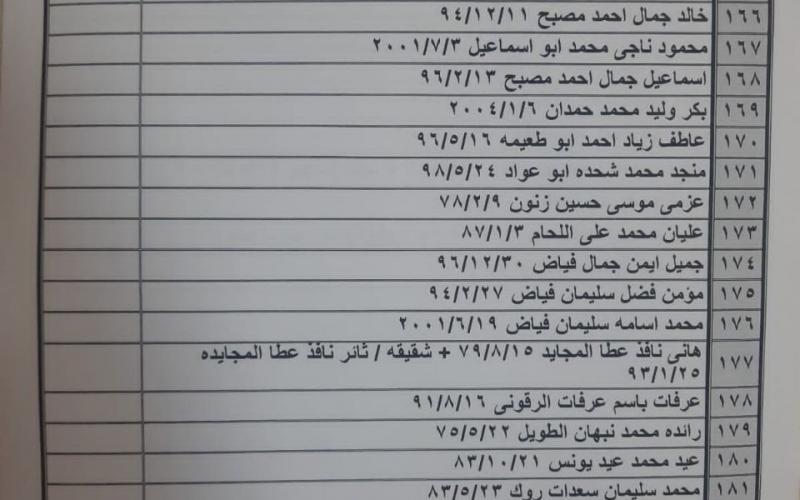 ١٦٦ خالد جمال احمد مصبح ٩٤/١٢/١١
١٦٧ محمود ناجى محمد ابو اسماعيل ٢٠٠١/٧/٣
١٦٨ اسماعيل جمال احمد مصبح ٩٦/٢/١٣
١٦٩ بكر وليد محمد حمدان ٢٠٠٤/١/٦
١٧٠ عاطف زياد احمد ابو طعيمه ٩٦/٥/١٦
١٧١ منجد محمد شحده ابو عواد ٩٨/٥/٢٤
١٧٢ عزمى موسى حسين زنون ٧٨/٢/٩
١٧٣ عليان محمد على اللحام ٨٧/١/٣
١٧٤ جميل ايمن جمال فياض ٩٦/١٢/٣٠
١٧٥ مؤمن فضل سليمان فياض ٩٤/٢/٢٧
١٧٦ محمد اسامه سليمان فياض ٢٠٠١/٦/١٩
١٧٧ هانى نافذ عطا المجايد ٧٩/٨/١٥ + شقيقه / ثائر نافذ عطا المجايده
٩٣/١/٢٥
١٧٨ عرفات باسم عرفات الرقونى ٩١/٨/١٦
١٧٩ رائده محمد نبهان الطويل ٧٥/٥/٢٢
١٨٠ عيد محمد عيد يونس ٨٣/١٠/٢١
١٨١ محمد سليمان سعدات روك ٨٣/٥/٢٣